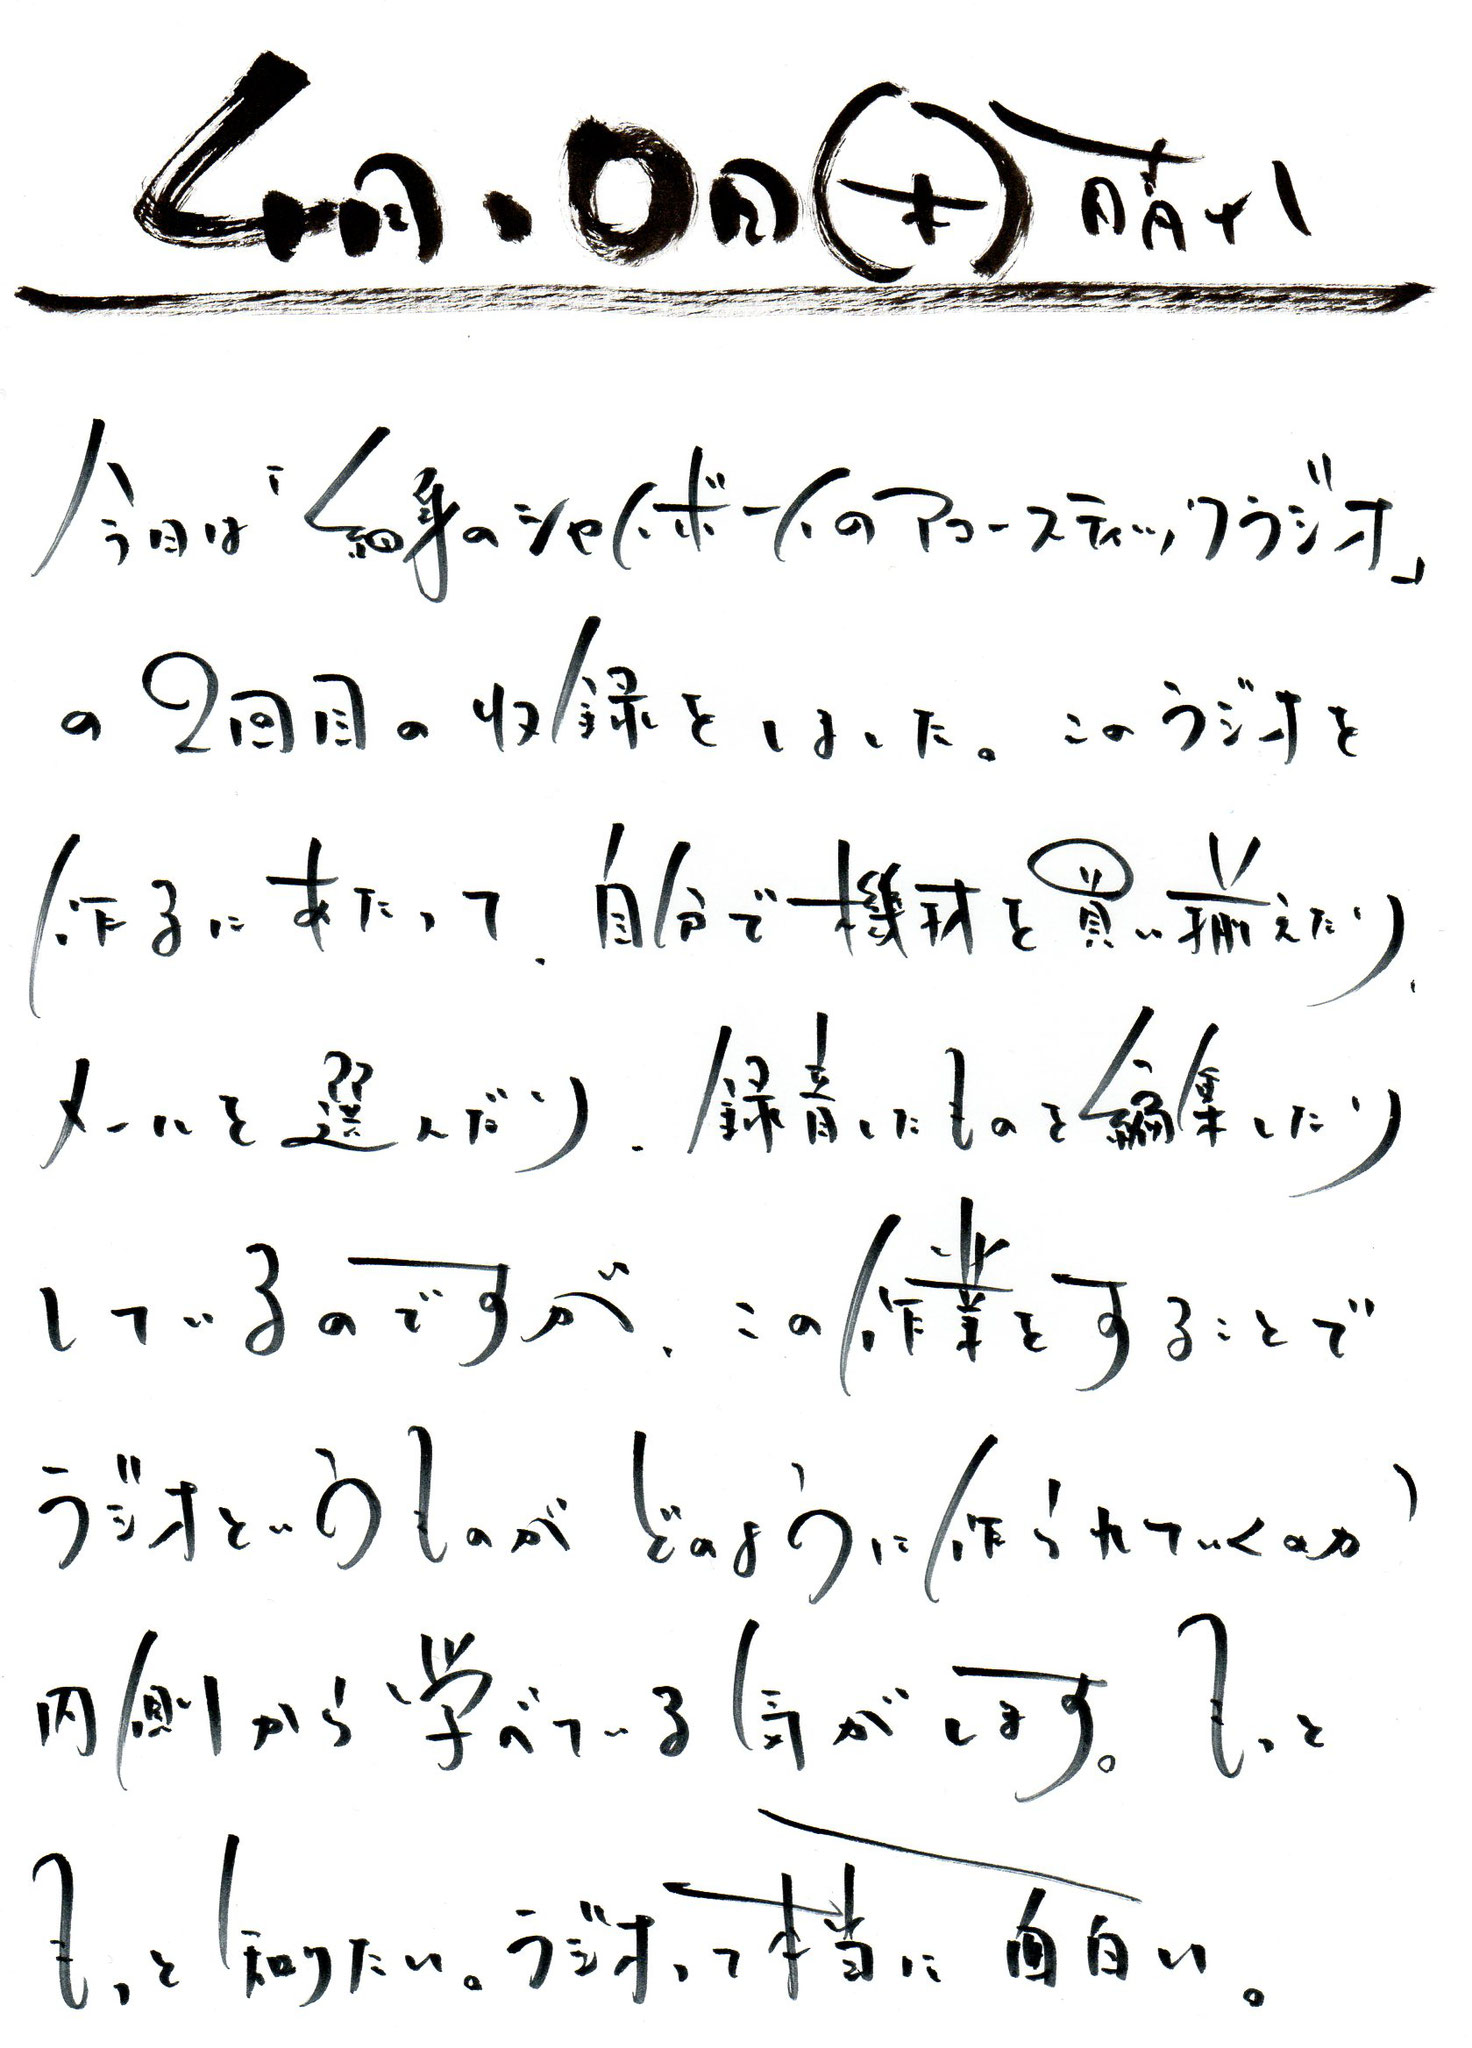 4月10日(木)晴れ
今日は「細身のシャイボーイのアコースティックラジオ」
の2回目の収録をしました。このラジオを
作るにあたって、自分で機材を買い揃えたり、
メールを選んだり、録音したものを編集したり
しているのですが、この作業をすることで
ラジオというものがどのように作られていくのか
内側から学べている気がします。もっと
もっと知りたい。ラジオって本当に面白い。